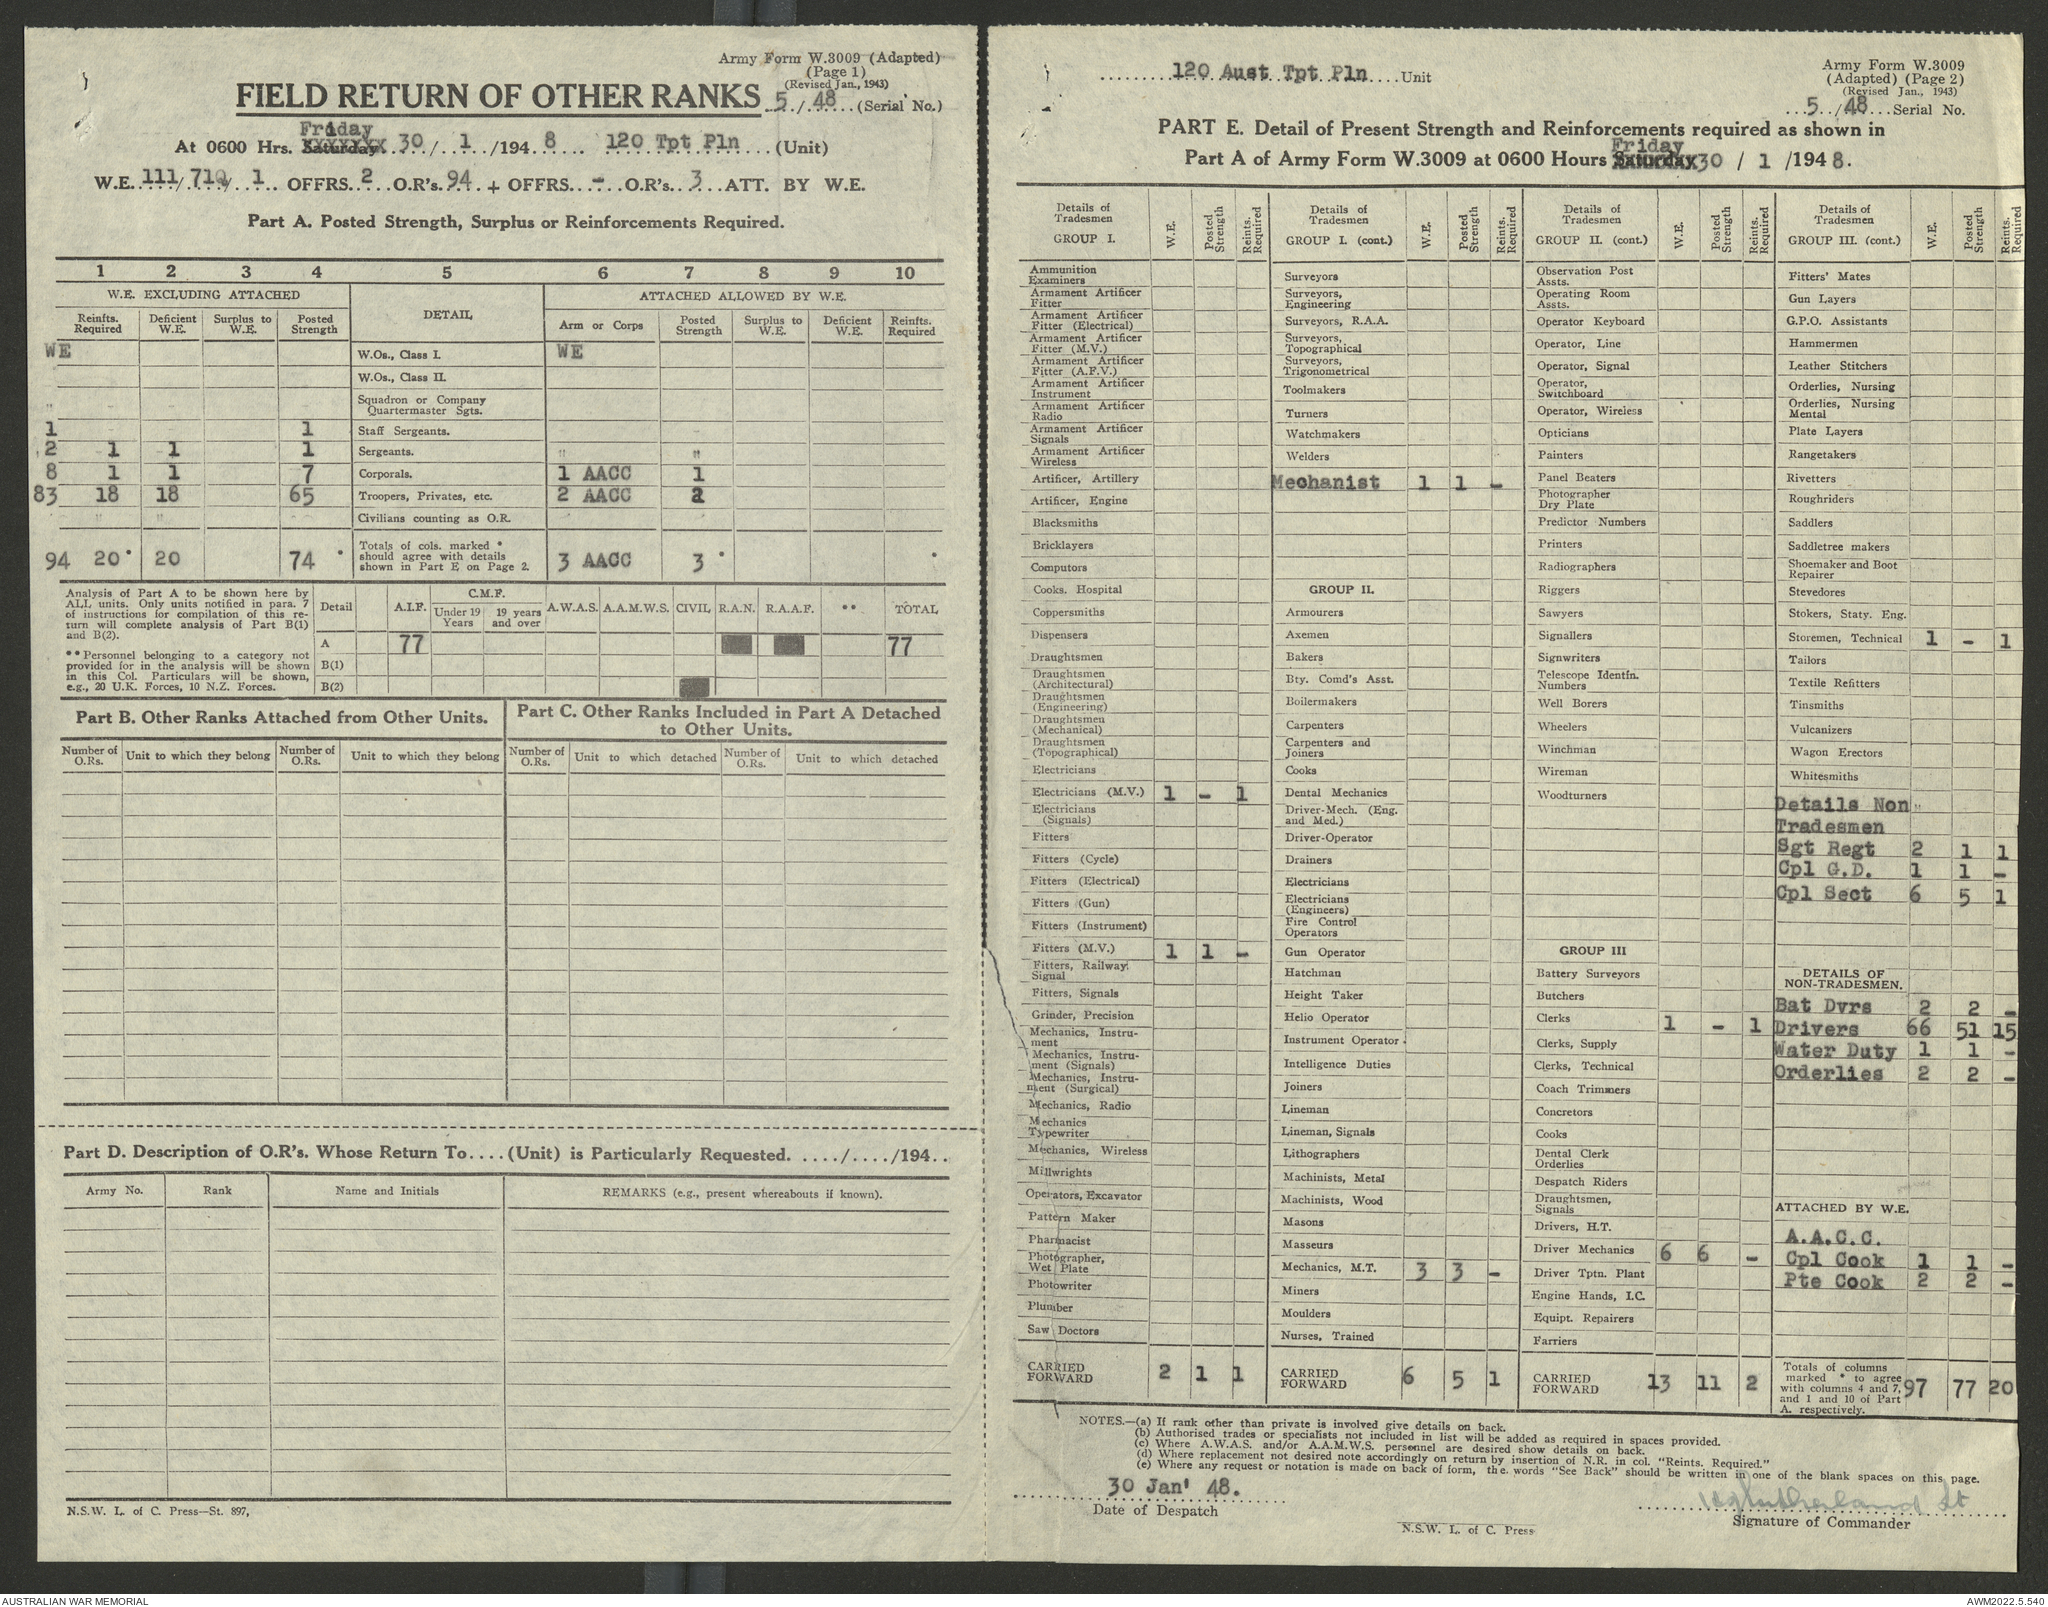 Army Form W.3009 (Adapted)
(Page 1)
(Revised Jan., 1943)
FIELD RETURN OF OTHER RANKS 5/48 (Serial No.)
At 0600 Hrs. Friday Saturday 30/1/1948 120 Tpt Pln (Unit)
W.E. 111/710/1 OFFRS. 2 O.R's. 94 + OFFRS. - O.R's. 3 ATT. BY W.E.
Part A. Posted Strength, Surplus or Reinforcements Required.
1 2 3 4 5 6 7 8 9 10
W.E. EXCLUDING ATTACHED DETAIL ATTACHED ALLOWED BY W.E.
Reinfts. Required Deficient W.E. Surplus to W.E. Posted Strength Arm or Corps Posted Strength Surplus to W.E. Deficient W.E. Reinfts. Required
WE W.Os., Class I. WE
W.Os., Class II.
Squadron or Company Quartermaster Sgts.
1 1 Staff Sergeants.
2 1 1 1 Sergeants.
8 1 1 7 Corporals. 1 AACC 1
83 18 18 65 Troopers, Privates, etc. 2 AACC 2
Civilians counting as O.R.
94 20* 20 74 * Totals of cols. marked * should agree with details shown in Part E on Page 2. 3 AACC 3 * *
Analysis of Part A to be shown here by
ALL units. Only units notified in para. 7
of instructions for compilation of this re-
turn will complete analysis of Part B(1)
and B(2).
**Personnel belonging to a category not
provided for in the analysis will be shown
in this Col. Particulars will be shown,
e.g., 20 U.K. Forces, 10 N.Z. Forces.
Detail A.I.F. C.M.F. Under 19 Years 19 years and over A.W.A.S. A.A.M.W.S. CIVIL R.A.N. R.A.A.F. ** TOTAL
A 77 77
B(1)
B(2)
Part B. Other Ranks Attached from Other Units.
Number of O.Rs. Unit to which they belong Number of O.Rs. Unit to which they belong
Part C. Other Ranks Included in Part A Detached
to Other Units.
Number of O.Rs. Unit to which detached Number of O.Rs. Unit to which detached
Part D. Description of O.R's. Whose Return To....(Unit) is Particularly Requested. ..../..../194..
Army No. Rank Name and Initials REMARKS (e.g., present whereabouts if known).
N.S.W. L. of C. Press—St. 897,
120 Aust Tpt Pln Unit
Army Form W.3009
(Adapted) (Page 2)
(Revised Jan., 1943)
5/48 Serial No.
PART E. Detail of Present Strength and Reinforcements required as shown in
Part A of Army Form W.3009 at 0600 Hours Friday Saturday 30 / 1 /1948.
Details of Tradesmen GROUP I. W.E. Posted Strength Reints. Required
Ammunition Examiners
Armament Artificer Fitter
Armament Artificer Fitter (Electrical)
Armament Artificer Fitter (M.V.)
Armament Artificer Fitter (A.F.V.)
Armament Artificer Instrument
Armament Artificer Radio
Armament Artificer Signals
Armament Artificer Wireless
Artificer, Artillery
Artificer, Engine
Blacksmiths
Bricklayers
Computors
Cooks, Hospital
Coppersmiths
Dispensers
Draughtsmen
Draughtsmen (Architectural)
Draughtsmen (Engineering)
Draughtsmen (Mechanical)
Draughtsmen (Topographical)
Electricians
Electricians (M.V.) 1 - 1
Electricians (Signals)
Fitters
Fitters (Cycle)
Fitters (Electrical)
Fitters (Gun)
Fitters (Instrument)
Fitters (M.V.) 1 1 -
Fitters, Railway Signal
Fitters, Signals
Grinder, Precision
Mechanics, Instru-ment
Mechanics, Instru-ment (Signals)
Mechanics, Instru-ment (Surgical)
Mechanics, Radio
Mechanics Typewriter
Mechanics, Wireless
Millwrights
Operators, Excavator
Pattern Maker
Pharmacist
Photographer, Wet Plate
Photowriter
Plumber
Saw Doctors
CARRIED FORWARD 2 1 1
Details of Tradesmen GROUP I. (cont.) W.E. Posted Strength Reints. Required
Surveyors
Surveyors, Engineering
Surveyors, R.A.A.
Surveyors, Topographical
Surveyors, Trigonometrical
Toolmakers
Turners
Watchmakers
Welders
Mechanist 1 1 -
GROUP II.
Armourers
Axemen
Bakers
Bty. Comd's Asst.
Boilermakers
Carpenters
Carpenters and Joiners
Cooks
Dental Mechanics
Driver-Mech. (Eng. and Med.)
Driver-Operator
Drainers
Electricians
Electricians (Engineers)
Fire Control Operators
Gun Operator
Hatchman
Height Taker
Helio Operator
Instrument Operator
Intelligence Duties
Joiners
Lineman
Lineman, Signals
Lithographers
Machinists, Metal
Machinists, Wood
Masons
Masseurs
Mechanics, M.T. 3 3 -
Miners
Moulders
Nurses, Trained
CARRIED FORWARD 6 5 1
Details of Tradesmen GROUP II. (cont.) W.E. Posted Strength Reints. Required
Observation Post Assts.
Operating Room Assts.
Operator Keyboard
Operator, Line
Operator, Signal
Operator, Switchboard
Operator, Wireless
Opticians
Painters
Panel Beaters
Photographer Dry Plate
Predictor Numbers
Printers
Radiographers
Riggers
Sawyers
Signallers
Signwriters
Telescope Identfn. Numbers
Well Borers
Wheelers
Winchman
Wireman
Woodturners
GROUP III
Battery Surveyors
Butchers
Clerks 1 - 1
Clerks, Supply
Clerks, Technical
Coach Trimmers
Concretors
Cooks
Dental Clerk Orderlies
Despatch Riders
Draughtsmen, Signals
Drivers, H.T.
Driver Mechanics 6 6 -
Driver Tptn. Plant
Engine Hands, I.C.
Equipt. Repairers
Farriers
CARRIED FORWARD 13 11 2
Details of Tradesmen GROUP III. (cont.) W.E. Posted Strength Reints. Required
Fitters' Mates
Gun Layers
G.P.O. Assistants
Hammermen
Leather Stitchers
Orderlies, Nursing
Orderlies, Nursing Mental
Plate Layers
Rangetakers
Rivetters
Roughriders
Saddlers
Saddletree makers
Shoemaker and Boot Repairer
Stevedores
Stokers, Staty. Eng.
Storemen, Technical 1 - 1
Tailors
Textile Refitters
Tinsmiths
Vulcanizers
Wagon Erectors
Whitesmiths
Details Non
Tradesmen
Sgt Regt 2 1 1
Cpl G.D. 1 1 -
Cpl Sect 6 5 1
DETAILS OF NON-TRADESMEN.
Bat Dvrs 2 2 -
Drivers 66 51 15
Water Duty 1 1 -
Orderlies 2 2 -
ATTACHED BY W.E.
A.A.C.C.
Cpl Cook 1 1 -
Pte Cook 2 2 -
Totals of columns marked * to agree with columns 4 and 7, and 1 and 10 of Part A. respectively. 97 77 20
NOTES.—(a) If rank other than private is involved give details on back.
(b) Authorised trades or specialists not included in list will be added as required in spaces provided.
(c) Where A.W.A.S. and/or A.A.M.W.S. personnel are desired show details on back.
(d) Where replacement not desired note accordingly on return by insertion of N.R. in col. "Reints. Required."
(e) Where any request or notation is made on back of form, the words "See Back" should be written in one of the blank spaces on this page.
30 Jan' 48.
Date of Despatch
N.S.W. L. of C. Press
Sutherland Lt
Signature of Commander
AUSTRALIAN WAR MEMORIAL
AWM2022.5.540